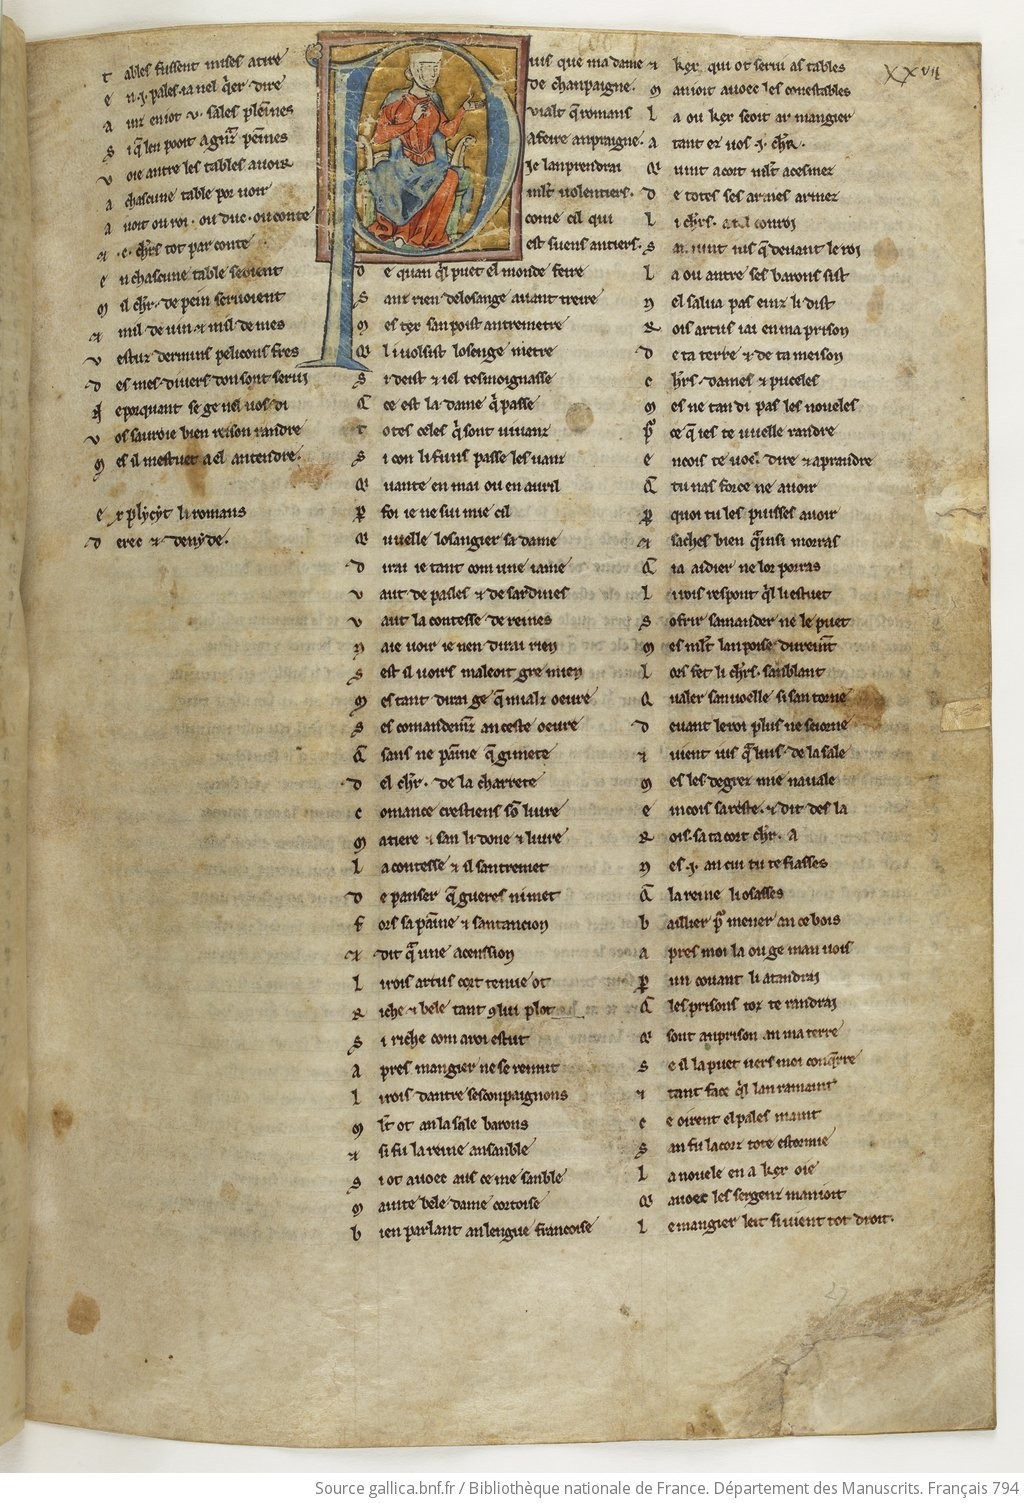 XXVII
tables fussent mises a tire
en .j. pales ia nel q̃er dire
aunz en i ot .v. sales pleines
si q̃ len pooit a grãt peines
uoie antre les tables auoir
a chascune table por uoir
auoit ou roi . ou duc . ou conte
et .c. chrs̃ tot par conte
en chascune table seoient
mil chr̃ . de pein seruoient
et mil de uin et mil de mes
uestuz d'ermins peliçons fres
des mes diuers don sont serui
ne porquant se ge nel uos di
uos sauroie bien reison randre
mes il mestuet a el antendre .
explycyt li romans
derec et denyde .
Puis que ma dame
de chanpaigne .
vialt q̃ romans
a feire anpraigne .
Je lanprendrai
mlt̃ uolentiers .
come cil qui
est suens antiers .
de quan q̃l puet el monde feire
sanz rien de losange auant treire
mes tex san poist antremetre
qui i uolsist losenge metre
si deist et iel tesmoignasse
que ce est la dame q̃ passe
totes celes q̃ sont uiuanz
si con li funs passe les uanz
qui uante en mai ou en auril
par foi ie ne sui mie cil
qui uuelle losangier sa dame
dirai ie tant com une iame
vaut de pailes et de sardines
vaut la contesse de reines
naie uoir ie nen dirai rien
sest il uoirs maleoit gre mien
mes tant dirai ge q̃ mialz oeure
ses comandemẽz an ceste oeure
que sans ne paine q̃ gi mete
del chr̃ . de la charrete
comance crestiens sõ liure
matiere et san li done et liure
la contesse et il santremet
de panser q̃ gueres ni met
fors sa paine et santancion
et dit q̃ a une acenssion
li rois artus cort tenue ot
riche et bele tant 9 lui plot
si riche com a roi estut
apres mangier ne se remut
li rois dantre ses conpaignons
mlt̃ ot an la sale barons
et si fu la reine ansanble
si ot auoec aus ce me sanble
mainte bele dame cortoise
bien parlant an lengue françoise
et kex qui ot serui as tables
manioit auoec les conestables
la ou kex seoit au mangier
a tant ez uos .j. chr̃ .
qui uint a cort mlt̃ acesmez
de totes ses armes armez
li chrs̃ . a tel conroi
san uint ius q̃ deuant le roi
la ou antre ses barons sist
nel salua pas einz li dist
rois artus iai en ma prison
de ta terre et de ta meison
chrs̃ . dames et puceles
mes ne tan di pas les noueles
por ce q̃ ies te uuelle randre
encois te uoel dire et aprandre
que tu nas force ne auoir
par quoi tu les puisses auoir
et saches bien qainsi morras
que ia aidier ne lor porras
li rois respont q̃l li estuet
sofrir samander ne le puet
mes mlt̃ lan poise duremt̃
lors fet li chrs̃ . sanblant
qualer san uoelle si san torne
deuant le roi plus ne seiorne
et uient ius q̃ luis de la sale
mes les degrez mie nauale
encois sareste . et dit des la
rois . sa ta cort chr̃ . a
nes .j. an cui tu te fiasses
que la reine li osasses
baillier por mener an ce bois
apres moi la ou ge man uois
par un couant li atandrai
que les prisons toz te randrai
qui sont an prison an ma terre
se il la puet uers moi conq̃rre
et tant face q̃l lan ramaint
ce oirent el pales maint
san fu la corz tote estormie
la nouele en a kex oie
qui auoec les sergenz manioit
le mangier leit si uient tot droit .
27
Source gallica.bnf.fr / Bibliothèque nationale de France. Département des Manuscrits. Français 794